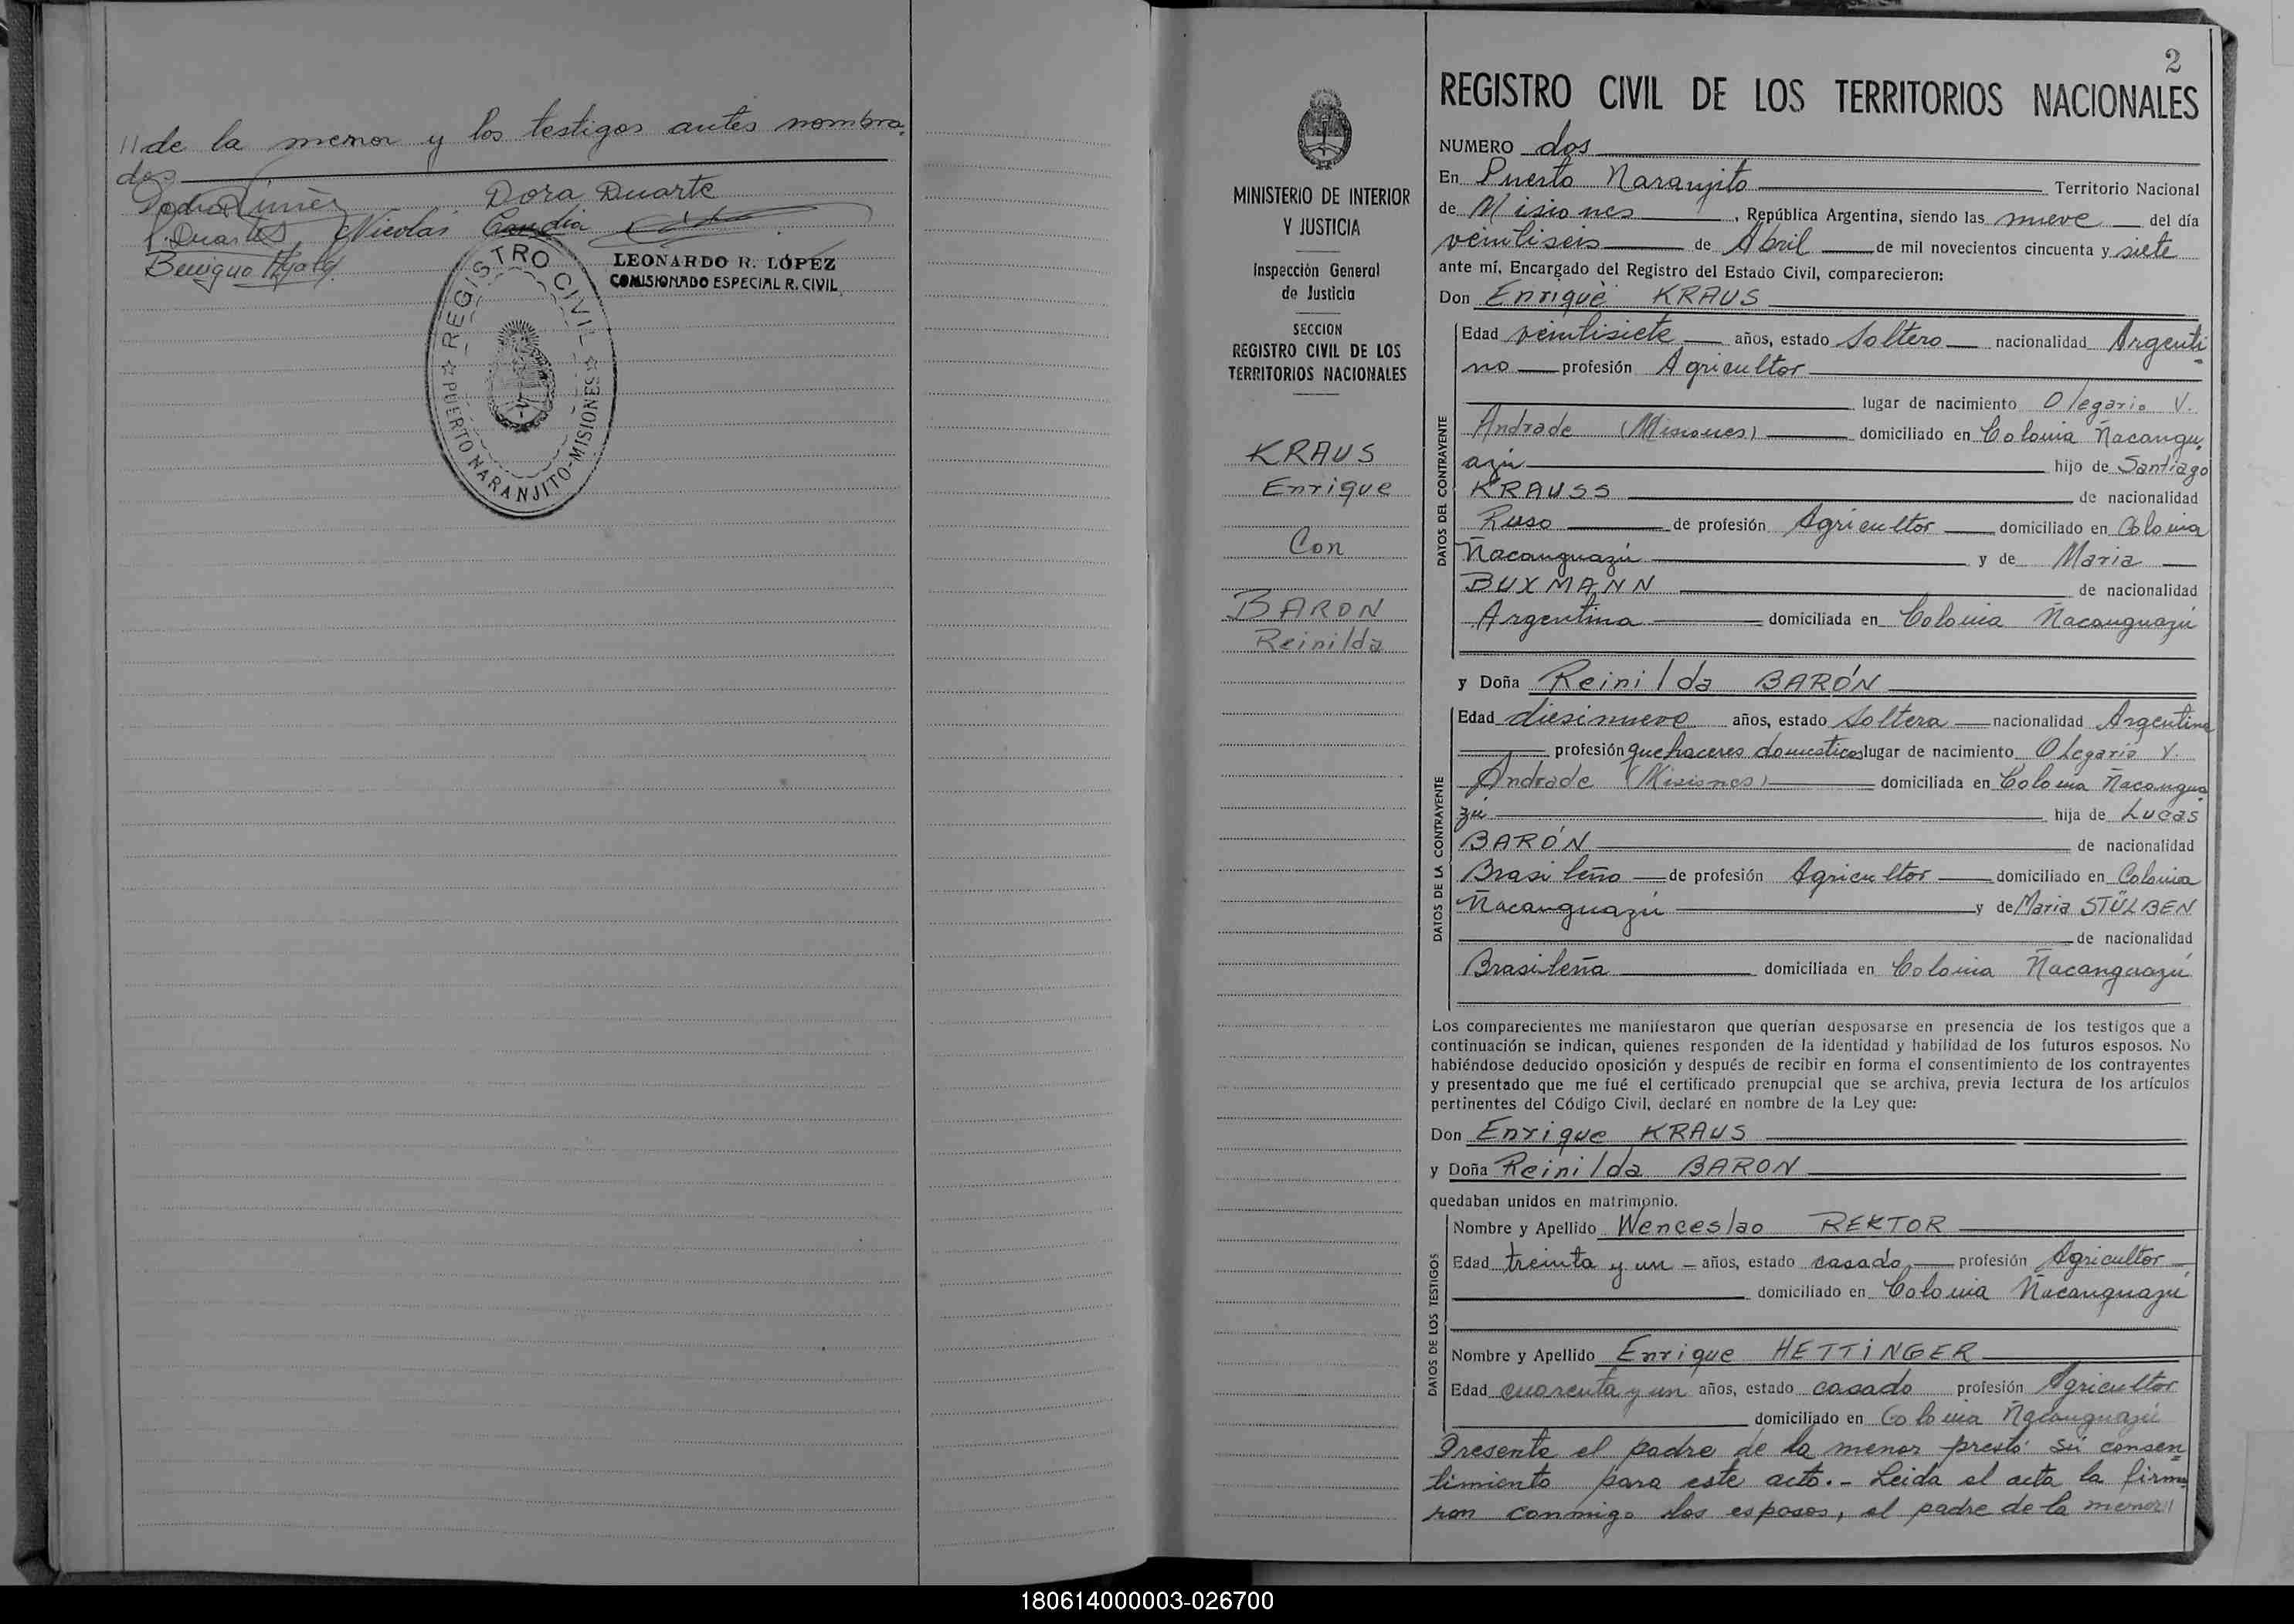 //de la menor y los testigos antes nombra-
dos
Dora Duarte
P. Duarte Nicolás Candia
Benigno
LEONARDO R. LÓPEZ
COMISIONADO ESPECIAL R. CIVIL
REGISTRO CIVIL
PUERTO NARANJITO-MISIONES
2
MINISTERIO DE INTERIOR
Y JUSTICIA
Inspección General
de Justicia
SECCION
REGISTRO CIVIL DE LOS
TERRITORIOS NACIONALES
KRAUS
Enrique
Con
BARON
Reinilda
REGISTRO CIVIL DE LOS TERRITORIOS NACIONALES
NUMERO dos
En Puerto Naranjito Territorio Nacional
de Misiones, República Argentina, siendo las nueve del día
veintiseis de Abril de mil novecientos cincuenta y siete
ante mí, Encargado del Registro del Estado Civil, comparecieron:
Don Enrique KRAUS
DATOS DEL CONTRAYENTE
Edad veintisiete años, estado Soltero nacionalidad Argenti-
no profesión Agricultor
lugar de nacimiento Olegario V.
Andrade (Misiones) domiciliado en Colonia Ñacangu-
azú hijo de Santiago
KRAUSS de nacionalidad
Ruso de profesión Agricultor domiciliado en Colonia
Ñacanguazú y de Maria
BUXMANN de nacionalidad
Argentina domiciliada en Colonia Ñacanguazú
y Doña Reinilda BARÓN
DATOS DE LA CONTRAYENTE
Edad diesinueve años, estado Soltera nacionalidad Argentina
profesión quehaceres domesticos lugar de nacimiento Olegario V.
Andrade (Misiones) domiciliada en Colonia Ñacangua-
zú hija de Lucas
BARÓN de nacionalidad
Brasileño de profesión Agricultor domiciliado en Colonia
Ñacanguazú y de Maria STÜLBEN
de nacionalidad
Brasileña domiciliada en Colonia Ñacanguazú
Los comparecientes me manifestaron que querían desposarse en presencia de los testigos que a
continuación se indican, quienes responden de la identidad y habilidad de los futuros esposos. No
habiéndose deducido oposición y después de recibir en forma el consentimiento de los contrayentes
y presentado que me fué el certificado prenupcial que se archiva, previa lectura de los artículos
pertinentes del Código Civil, declaré en nombre de la Ley que:
Don Enrique KRAUS
y Doña Reinilda BARON
quedaban unidos en matrimonio.
DATOS DE LOS TESTIGOS
Nombre y Apellido Wenceslao REKTOR
Edad treinta y un años, estado casado profesión Agricultor
domiciliado en Colonia Ñacanguazú
Nombre y Apellido Enrique HETTINGER
Edad cuarenta y un años, estado casado profesión Agricultor
domiciliado en Colonia Ñacanguazú
Presente el padre de la menor prestó su consen-
timiento para este acto.- Leida el acta la firma-
ron conmigo los esposos, el padre de la menor//
180614000003-026700